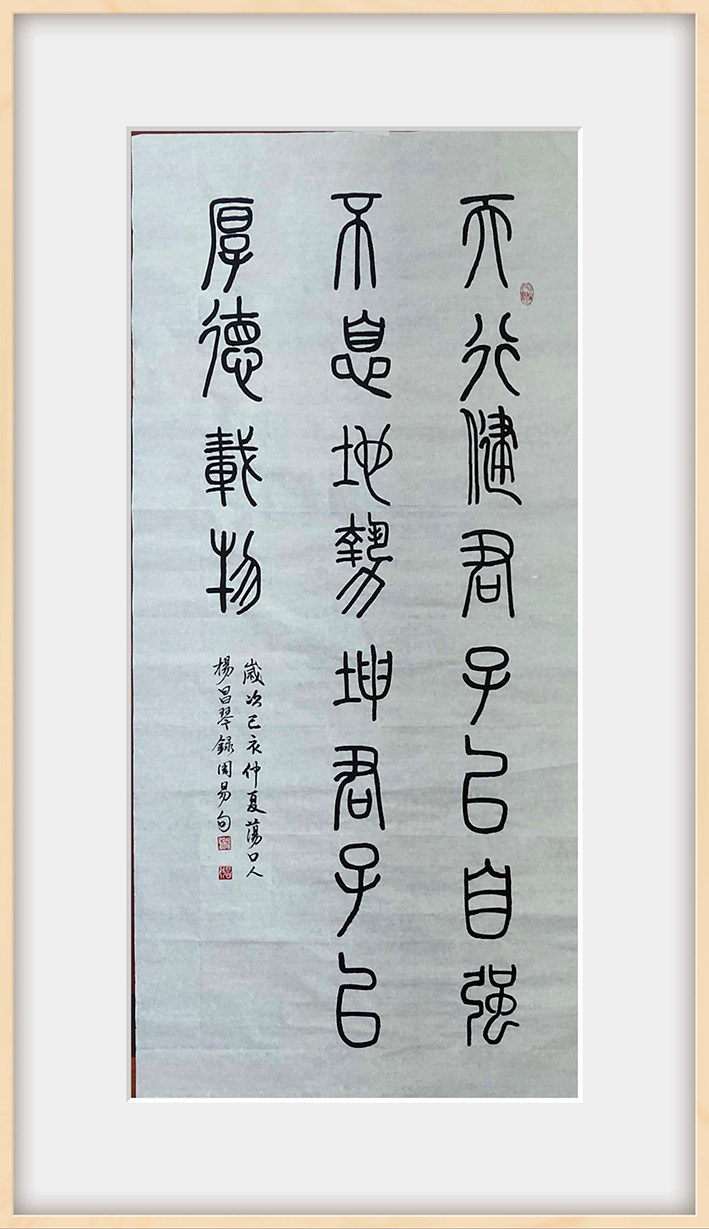 天行健君子㠯自强
不息地势坤君子㠯
厚德載物
歲次己亥仲夏蕩口人
楊昌琴錄周易句